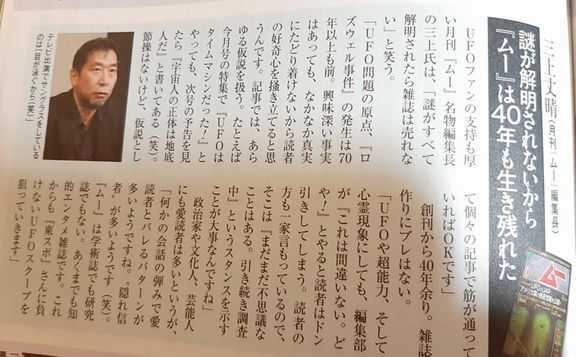 三上丈晴(月刊『ムー』編集長)
謎が解明されないから
『ムー』は40年も生き残れた
UFOファンの支持も厚
い月刊『ムー』名物編集長
の三上氏は、「謎がすべて
解明されたら雑誌は売れな
い」と笑う。
「UFO問題の原点、『ロ
ズウェル事件』の発生は70
年以上も前。興味深い事実
はあっても、なかなか真実
にたどり着けないから読者
の好奇心を掻き立てると思
うんです。記事では、あら
ゆる仮説を扱う。たとえば
今月号の特集で『UFOは
タイムマシンだった!』と
やっても、次号の予告を見
たら『宇宙人の正体は地底
人だ』と書いてある(笑)。
節操はないけど、仮説とし
テレビ出演でサングラスをしている
のは「目が泳ぐから(笑)」
て個々の記事で筋が通って
いればOKです」
創刊から40年余り。雑誌
作りにブレはない。
「UFOや超能力、そして
心霊現象にしても、編集部
が『これは間違いない。ど
や!』とやると読者はドン
引きしてしまう。読者の
方も一家言もっているので、
そこは『まだまだ不思議な
ことはある。引き続き調査
中』というスタンスを示す
ことが大事なんですね」
政治家や文化人、芸能人
にも愛読者は多いというが、
「何かの会話の弾みで愛
読者とバレるパターンが
多いようですね。“隠れ信
者”が多いようです(笑)。
『ムー』は学術誌でも研究
誌でもない。あくまでも知
的エンタメ雑誌です。これ
からも『東スポ』さんに負
けないUFOスクープを
狙っていきます」
ムー